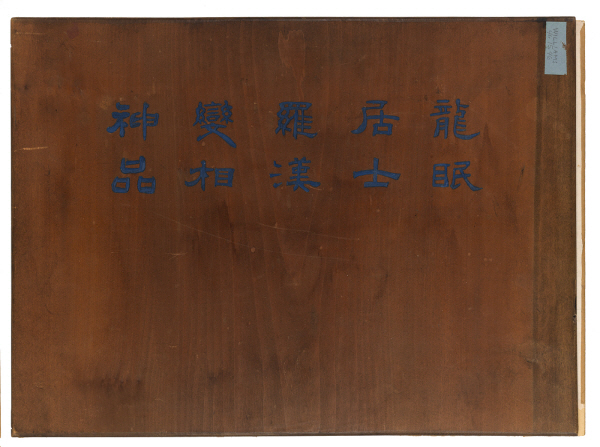 龍眠
居士
羅漢
變相
神品